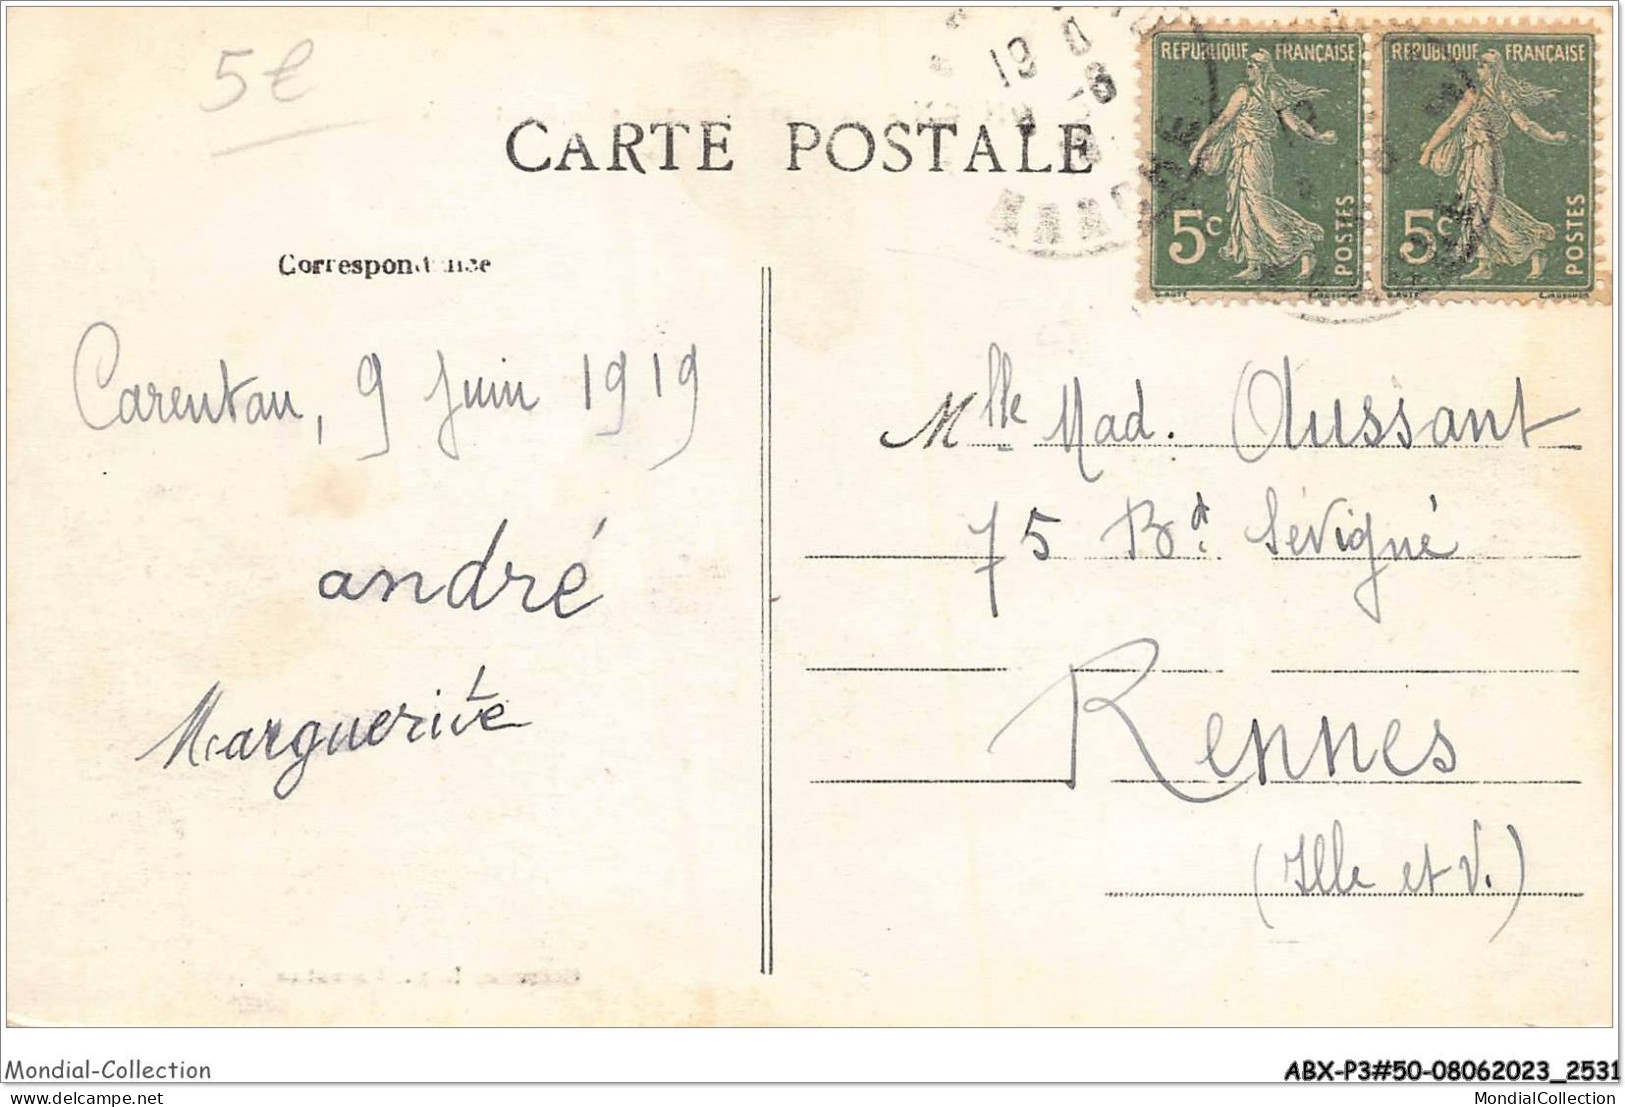 5€
CARTE POSTALE
REPUBLIQUE FRANÇAISE
5c
POSTES
REPUBLIQUE FRANÇAISE
5c
POSTES
Correspondance
Carentan, 9 Juin 1919
andré
Marguerite
Mlle Mad. Oussant
75 Bd. Sévigné
Rennes
(Ille et V.)
Mondial-Collection
ABX-P3#50-08062023_2531
delcampe.net
MondialCollection